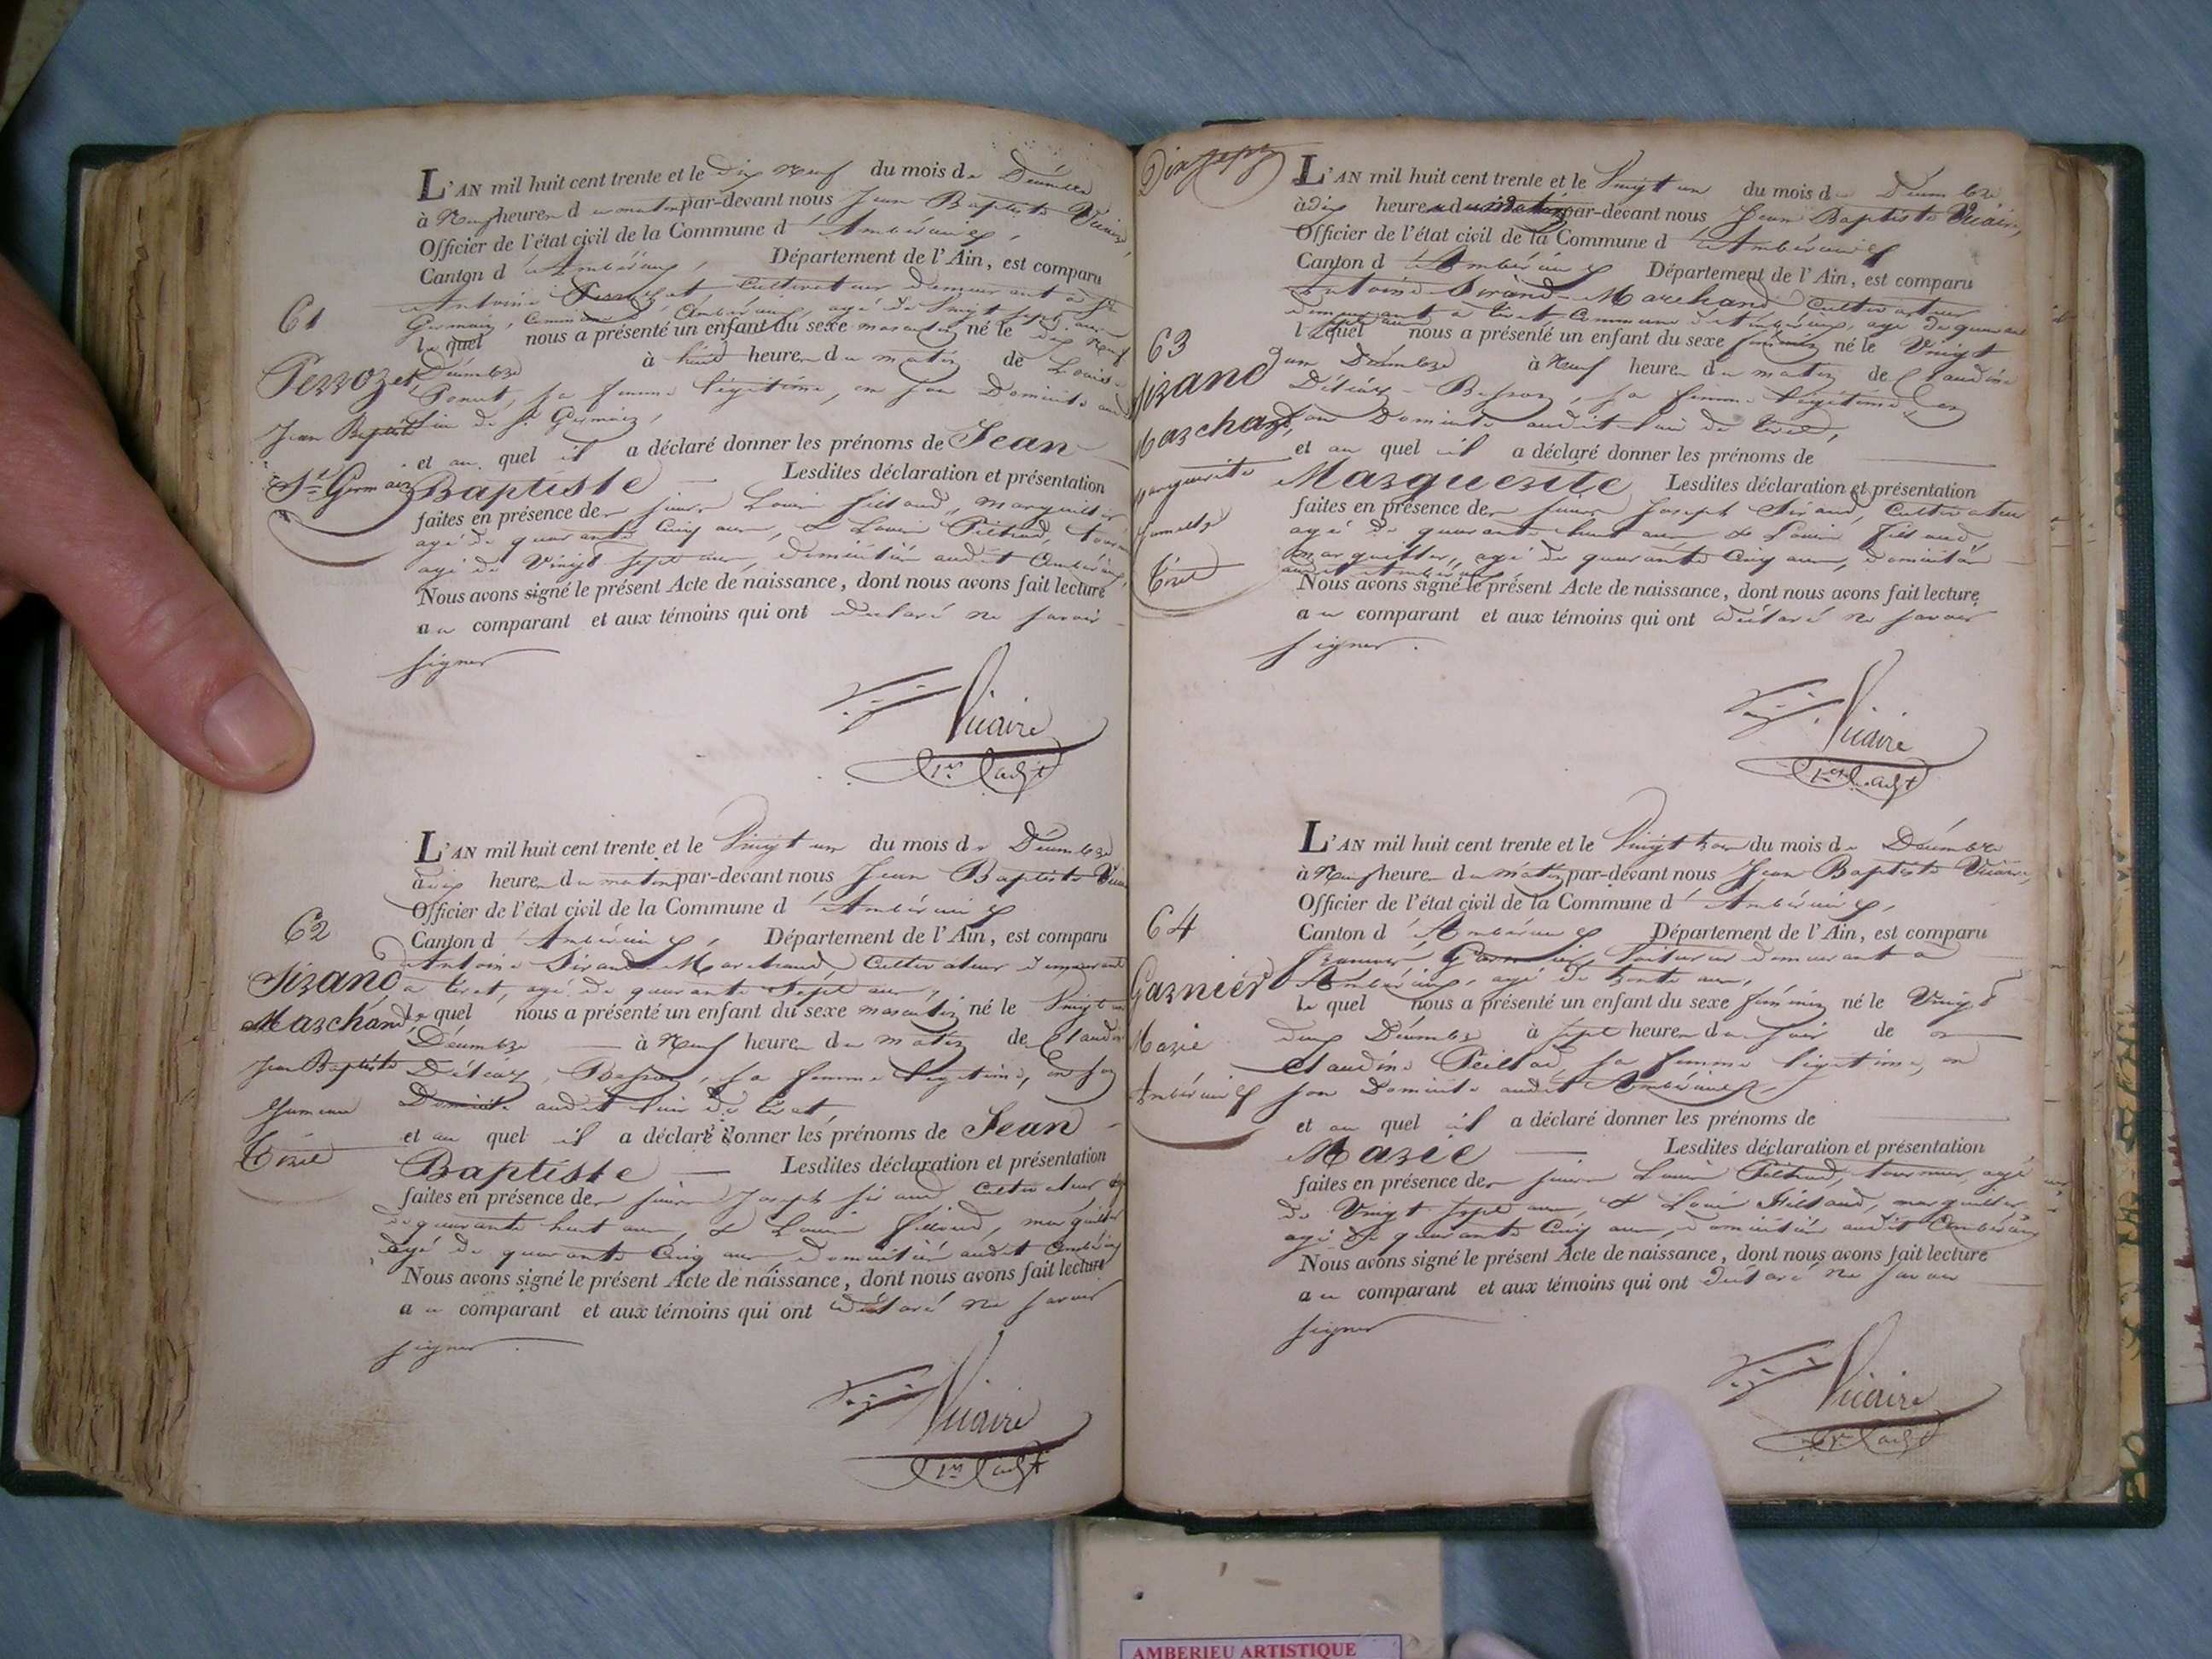 L'AN mil huit cent trente et le Dix Neuf du mois de Décembre
à Neuf heures du matin par-devant nous Jean Baptiste Vicaire
Officier de l'état civil de la Commune d'Ambérieux,
Canton d'Ambérieux, Département de l'Ain, est comparu
Antoine Cultivateur demeurant à St
Germain, Ambérieux, agé de Vingt sept ans
61
lequel nous a présenté un enfant du sexe masculin né le dix Neuf
Décembre à huit heures du matin de Louise
Perrozet
sa femme légitime, en son Domicile
Jean Baptiste
lieu de St Germain,
et auquel il a déclaré donner les prénoms de Jean
St Germain
Baptiste — Lesdites déclaration et présentation
faites en présence des sieurs Louis Filloud, marguillier
agé de quarante Cinq ans, & Louis
agé de Vingt sept ans, domiciliés audit Ambérieux,
Nous avons signé le présent Acte de naissance, dont nous avons fait lecture
au comparant et aux témoins qui ont déclaré ne savoir
signer
Vicaire
1er adjt
L'AN mil huit cent trente et le Vingt un du mois de Décembre
à dix heures du matin par-devant nous Jean Baptiste Vicaire
Officier de l'état civil de la Commune d'Ambérieux
62
Canton d'Ambérieux, Département de l'Ain, est comparu
Antoine Sirand-Marchand, Cultivateur demeurant
Sirand
à Tiret, agé de quarante Sept ans,
Marchand
lequel nous a présenté un enfant du sexe masculin né le Vingt un
Décembre — à Neuf heures du matin de Claudine
Jean Baptiste
sa femme légitime, en son
Jumeau
Domicile audit lieu de Tiret,
et auquel il a déclaré donner les prénoms de Jean
Tiret
Baptiste — Lesdites déclaration et présentation
faites en présence des sieurs Joseph Sirand Cultivateur agé
de quarante huit ans, & Louis Filloud, marguillier
agé de quarante Cinq ans, domiciliés audit Ambérieux
Nous avons signé le présent Acte de naissance, dont nous avons fait lecture
au comparant et aux témoins qui ont déclaré ne savoir
signer.
Vicaire
1er adjt
Dix sept
L'AN mil huit cent trente et le Vingt un du mois de Décembre
à Dix heures du matin par-devant nous Jean Baptiste Vicaire,
Officier de l'état civil de la Commune d'Ambérieux
Canton d'Ambérieux Département de l'Ain, est comparu
Antoine Sirand-Marchand Cultivateur
demeurant à Tiret Commune d'Ambérieux, agé de quarante
63
lequel nous a présenté un enfant du sexe féminin né le Vingt
un Décembre à Neuf heures du matin de Claudine
Sirand
sa femme légitime, en
Marchand
son Domicile audit lieu de Tiret,
et auquel il a déclaré donner les prénoms de
Marguerite
Marguerite Lesdites déclaration et présentation
faites en présence des sieurs Joseph Sirand, Cultivateur
Jumelle
agé de quarante huit ans & Louis Filloud
marguillier, agé de quarante Cinq ans, domiciliés
Tiret
audit Ambérieux
Nous avons signé le présent Acte de naissance, dont nous avons fait lecture
au comparant et aux témoins qui ont déclaré ne savoir
signer.
Vicaire
1er adjt
L'AN mil huit cent trente et le Vingt trois du mois de Décembre
à Neuf heures du matin par-devant nous Jean Baptiste Vicaire,
Officier de l'état civil de la Commune d'Ambérieux,
64
Canton d'Ambérieux Département de l'Ain, est comparu
François Garnier, Voiturier demeurant à
Garnier
Ambérieux, agé de trente ans,
lequel nous a présenté un enfant du sexe féminin né le Vingt
Marie
deux Décembre à sept heures du soir de
Claudine sa femme légitime, en
Ambérieux
son Domicile audit Ambérieux,
et auquel il a déclaré donner les prénoms de
Marie — Lesdites déclaration et présentation
faites en présence des sieurs Louis tourneur, agé
de Vingt sept ans, & Louis Filloud, marguillier
agé de quarante Cinq ans, domiciliés audit Ambérieux
Nous avons signé le présent Acte de naissance, dont nous avons fait lecture
au comparant et aux témoins qui ont déclaré ne savoir
signer
Vicaire
1er adjt
AMBERIEU ARTISTIQUE